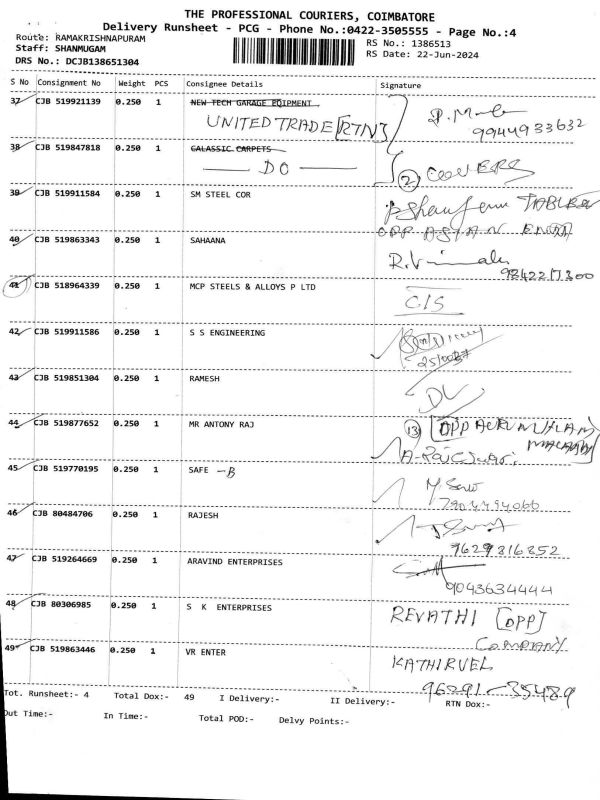 THE PROFESSIONAL COURIERS, COIMBATORE
Delivery Runsheet - PCG - Phone No.:0422-3505555 - Page No.:4
Route: RAMAKRISHNAPURAM
RS No.: 1386513
Staff: SHANMUGAM
RS Date: 22-Jun-2024
DRS No.: DCJB138651304
S No Consignment No Weight PCS Consignee Details Signature
37 CJB 519921139 0.250 1 NEW TECH GARAGE EQIPMENT
UNITED TRADE [RTN]
9944933632
38 CJB 519847818 0.250 1 GALASSIC CARPETS
DO
(2) COVERS
39 CJB 519911584 0.250 1 SM STEEL COR
40 CJB 519863343 0.250 1 SAHAANA
R.Vimala
9842217300
41 CJB 518964339 0.250 1 MCP STEELS & ALLOYS P LTD
C/S
42 CJB 519911586 0.250 1 S S ENGINEERING
43 CJB 519851304 0.250 1 RAMESH
DL
44 CJB 519877652 0.250 1 MR ANTONY RAJ
(13) [OPP
45 CJB 519770195 0.250 1 SAFE -B
7904494066
46 CJB 80484706 0.250 1 RAJESH
9629816852
47 CJB 519264669 0.250 1 ARAVIND ENTERPRISES
9043634444
48 CJB 80306985 0.250 1 S K ENTERPRISES
REVATHI [OPP]
COMPANY
49 CJB 519863446 0.250 1 VR ENTER
KATHIRVEL
96291-35489
Tot. Runsheet:- 4 Total Dox:- 49 I Delivery:- II Delivery:- RTN Dox:-
Out Time:- In Time:- Total POD:- Delvy Points:-